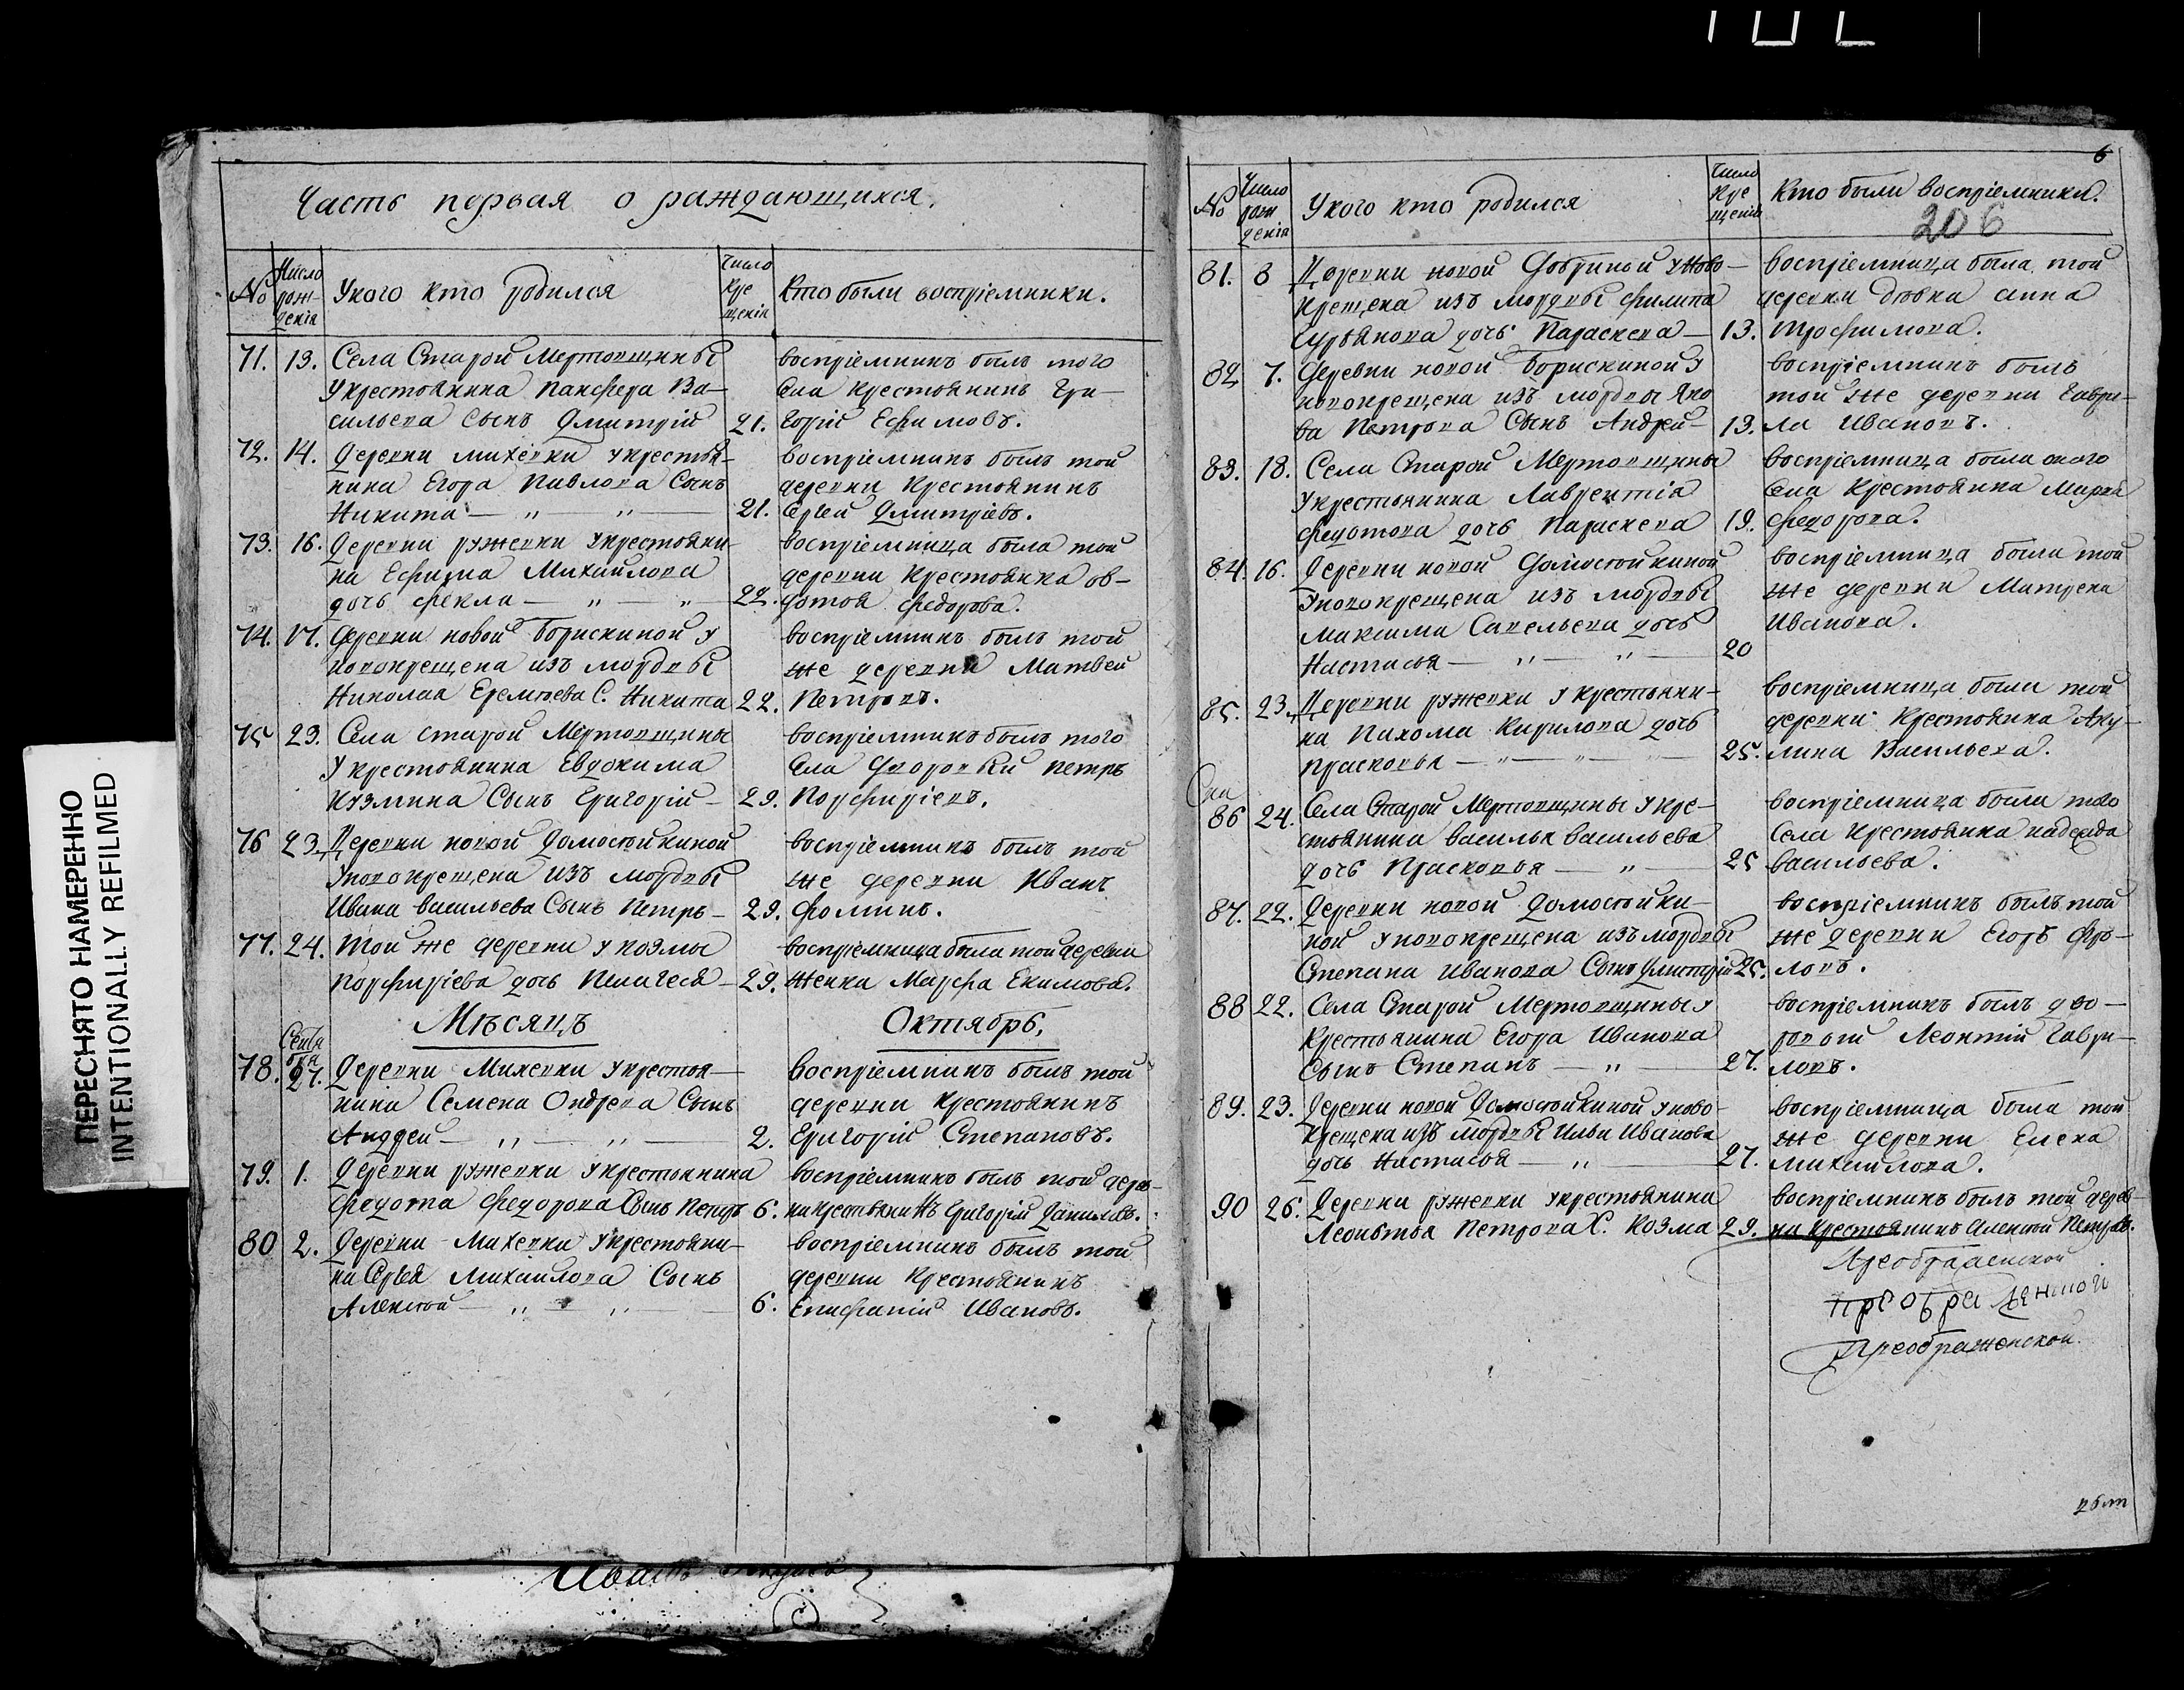 ПЕРЕСНЯТО НАМЕРЕННО
INTENTIONALLY REFILMED
Часть первая о раждающихся.
№ Число рождения Укого кто родился Число крещения Кто были восприемники.
71. 13. Села Старой Мертовщины
Укрестьянина Панфера Ва-
сильева Сынъ Дмитрій 21.
восприемникъ былъ того
Села крестьянинъ Гри-
горій Ефимовъ.
72. 14. Деревни михевки укрестья-
нина Егора Павлова Сынъ
Никита — „ — „ — 21.
восприемникъ былъ той
деревни Крестьянинъ
Сергей Дмитріевъ.
73. 16. Деревни ружевки Укрестьяни-
на Ефима Михайлова
дочь фекла — „ — „ — 22.
восприемница была той
деревни Крестьянка ов-
дотья федорова.
74. 17. Деревни новой Борискиной у
новокрещена изъ мордвы
Николая Еремѣева С. Никита 22.
восприемникъ былъ той
же деревни Матвей
Петровъ.
75 23. Села старой Мертовщины
Укрестьянина Евдокима
Кузмина Сынъ Григорій — 29.
восприемникъ былъ того
Села Дворовый петръ
Порфиріевъ.
76 23. Деревни новой Домостойкиной
Уновокрещена изъ мордвы
Ивана васильева Сынъ Петръ — 29.
восприемникъ былъ той
же деревни Иванъ
фоминъ.
77. 24. Той же деревни у козмы
порфиріева дочь Пелагея — 29.
восприемница была той деревни
женка Марфа Екимова.
Мѣсяцъ Октябрь.
Сентя
бря
78. 27. Деревни Михевки Укрестья-
нина Семена Ондрева Сынъ
Андрей — „ — „ — 2.
восприемникъ былъ той
деревни крестьянинъ
Григорій Степановъ.
79. 1. Деревни ружевки Укрестьянина
федота федорова Сынъ Петръ 6.
восприемникъ былъ той дерев-
ни крестьянинъ Григорій Даниловъ.
80 2. Деревни Михевки Укрестьяни-
на Сергѣя Михайлова Сынъ
Алексей — „ — „ — 6.
восприемникъ былъ той
деревни Крестьянинъ
Епифаній Ивановъ.
6
№ Число рождения Укого кто родился Число крещения Кто были восприемники.
206
81. 8 Деревни новой Добриной уново-
крещена изъ мордвы филипа
Гурьянова дочь Параскева — 13.
восприемница была той
деревни дѣвка анна
Трофимова.
82 7. Деревни новой Борискиной У
новокрещена изъ мордвы Яко
ва Петрова Сынъ Андрей — 13.
восприемникъ былъ
той же деревни Гаври-
ла Ивановъ.
83. 18. Села Старой Мертовщины
Укрестьянина Лаврентія
федотова дочь Параскева 19.
восприемница была оного
Села Крестьянка Марья
федорова.
84. 16. Деревни новой Домостойкиной
Уновокрещена изъ мордвы
Максима Савельева дочь
Настасья — „ — „ — 20
восприемница была той
же деревни Матрена
Иванова.
85. 23. Деревни ружевки Укрестьяни-
на Пахома Кирилова дочь
Прасковья — „ — „ — 25.
восприемница была той
деревни Крестьянка Аку-
лина Васильева.
86 24. Села Старой Мертовщины Укре-
стьянина василья васильева
дочь Прасковья — „ — 25
восприемница была того
Села Крестьянка надежда
васильева.
87. 22. Деревни новой Домостойки-
ной уновокрещена изъ мордвы
Степана Иванова Сынъ Дмитрій 25.
восприемникъ былъ той
же деревни Егоръ фро-
ловъ.
88 22. Села Старой Мертовщины у
Крестьянина Егора Иванова
Сынъ Степанъ — „ — 27.
восприемникъ былъ дво-
ровой Леонтій Гаври-
ловъ.
89. 23. Деревни новой Домостойкиной уново-
крещена изъ мордвы Ильи Иванова
дочь Настасья — „ — 27.
восприемница была той
же деревни Елена
михайлова.
90 26. Деревни ружевки Укрестьянина
Леонтья Петрова С. Козма 29.
восприемникъ былъ той дерев-
ни крестьянинъ Алексей Петровъ.
Преображенской
Преображенской
Преображенской